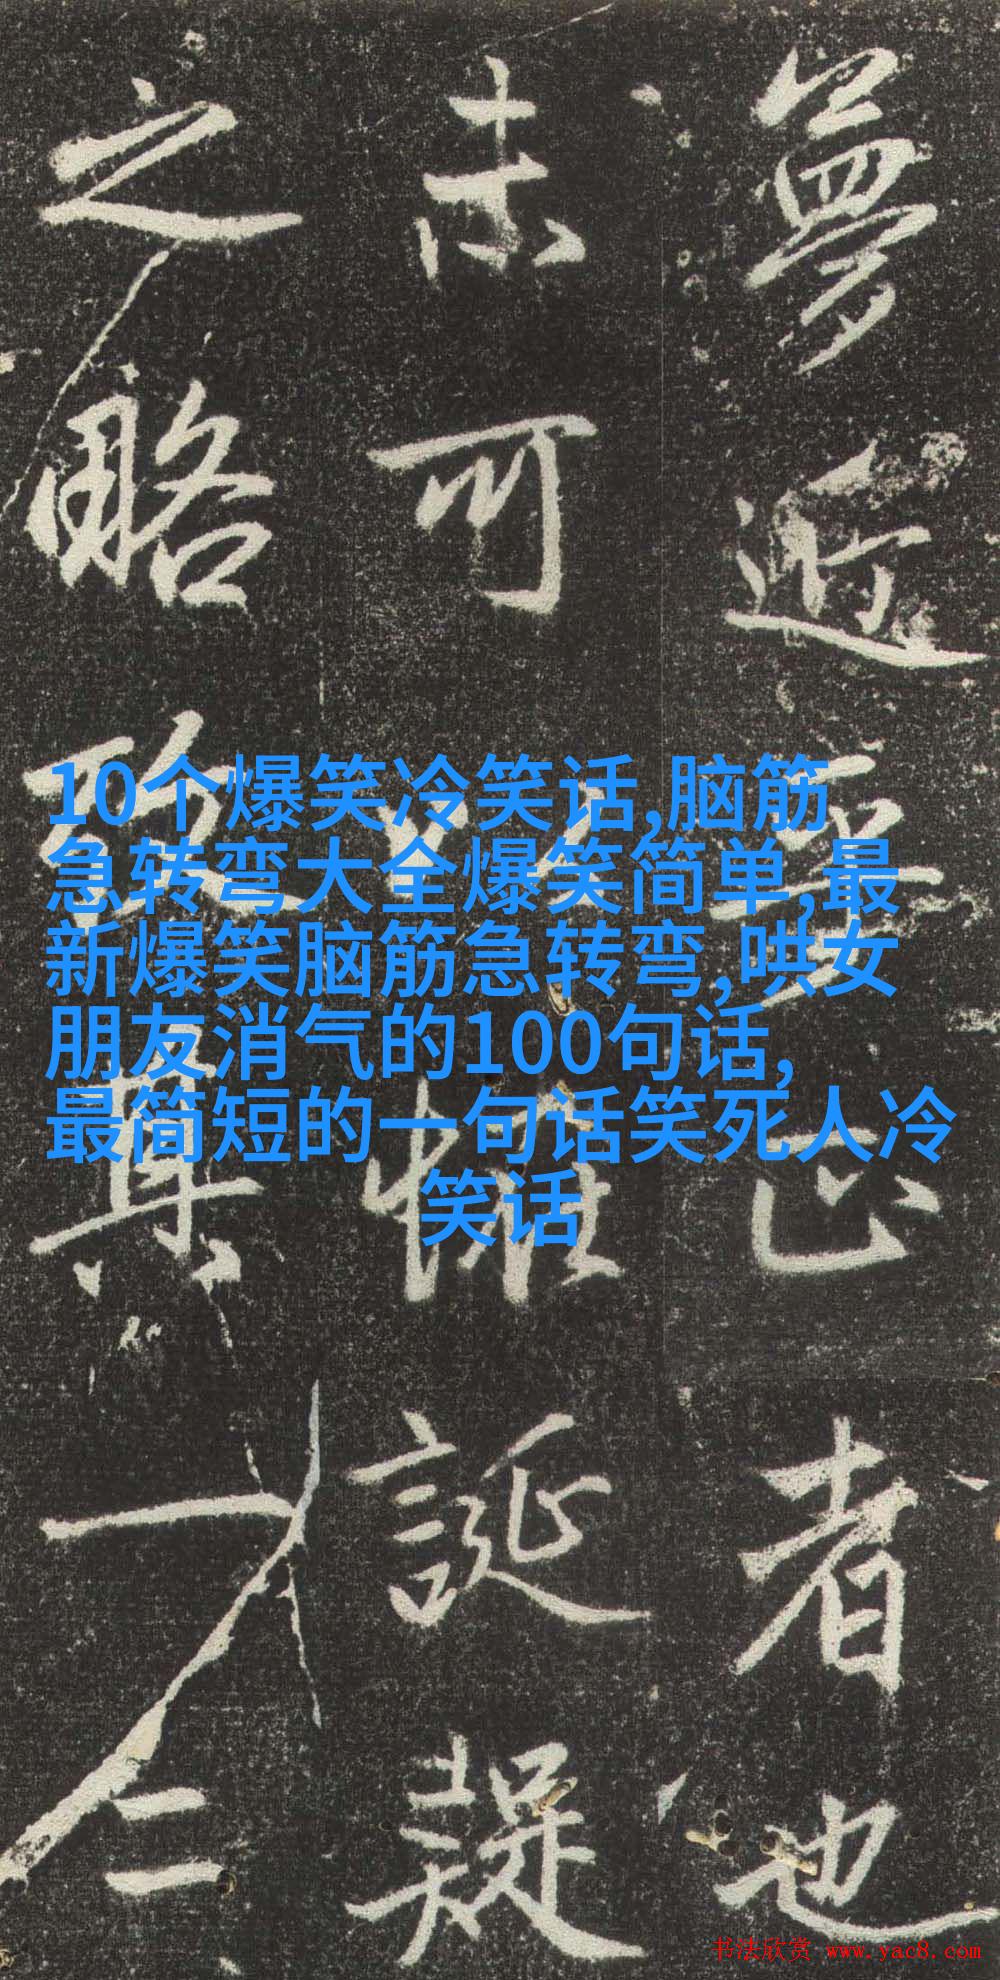 夢近正者也
未可誕疑
之略其一二
10个爆笑冷笑话,脑筋
急转弯大全爆笑简单,最
新爆笑脑筋急转弯,哄女
朋友消气的100句话,
最简短的一句话笑死人冷
笑话
书法欣赏 www.yac8.com